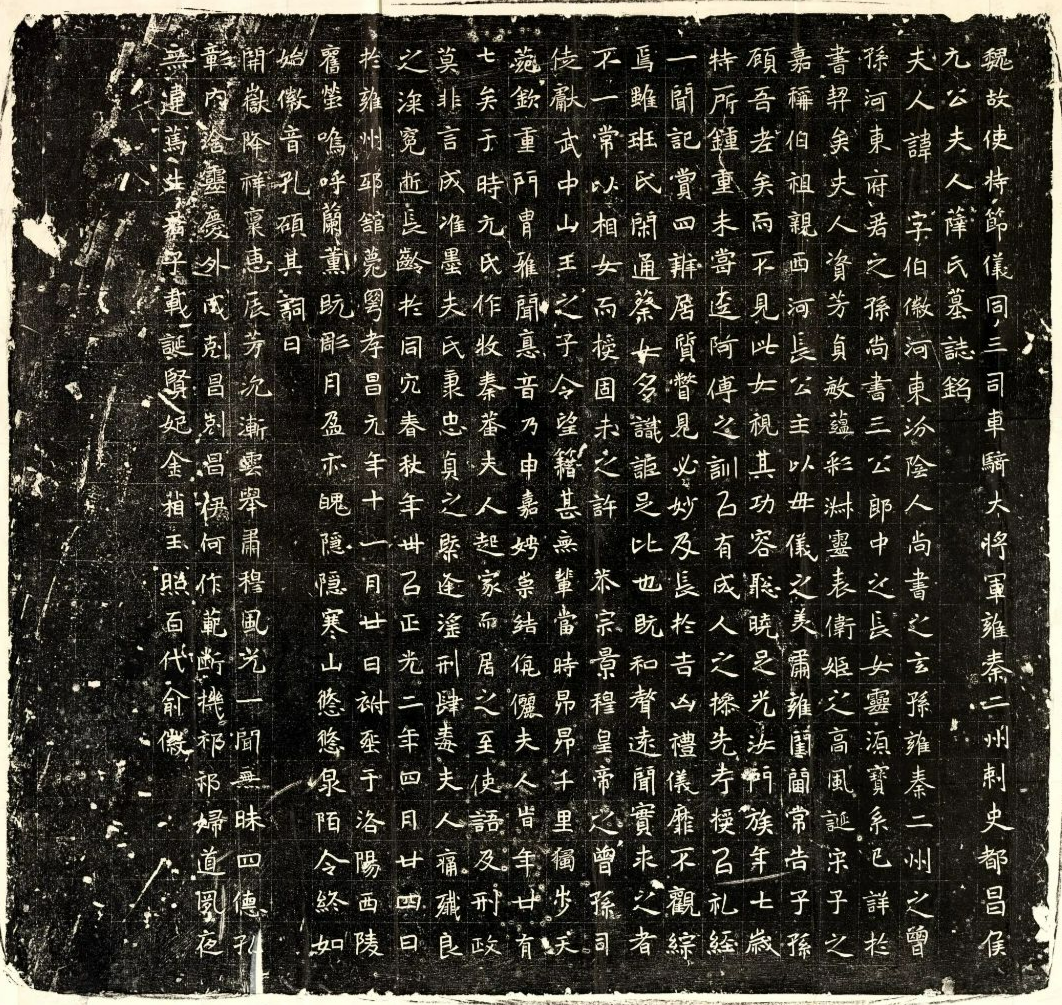 魏故使持節儀同三司車騎大將軍雍秦二州刺史都昌侯
元公夫人薛氏墓誌銘
夫人諱 字伯徽河東汾陰人尚書之玄孫雍秦二州之曾
孫河東府君之孫尚書三公郎中之長女靈源寶系已詳於
書契矣夫人資芳貞敏蘊彩淋靈表衛姬之高風誕宋子之
嘉稱伯祖親西河長公主以母儀之美肅雍閨閫常告子孫
顧吾老矣而不見此女視其功容聡曉足光汝門族年七歲
特所鍾重未嘗逵阿傅之訓已有成人之操先考授以礼經
一聞記賞四辨居質瞥見必妙及長於吉凶禮儀靡不觀綜
焉雖班氏閑通蔡女多識詎足比也既和聲遠聞實求之者
不一常以相女而授固未之許 恭宗景穆皇帝之曾孫司
徒獻武中山王之子令望籍甚無輩當時昂昂千里獨步天
苑欽重門胄雅聞悳音乃申嘉娉崇結伉儷夫人時年廿有
七矣于時元氏作牧秦蕃夫人起家而居之至使語及刑政
莫非言成准墨夫氏秉忠貞之槩逢滛刑肆毒夫人痛殲良
之深冤逝長齡於同穴春秋年卅以正光二年四月廿四日
於雍州邸舘薨粵孝昌元年十一月廿日祔塟于洛陽西陵
舊塋嗚呼蘭薰既彫月盈亦魄隱隱寒山悠悠泉陌令終如
始徽音孔碩其詞曰
開嶽降祥稟惠辰芳沉漸雲舉肅穆風光一聞無昧四德孔
彰內淦靈慶外成剋昌剋昌伊何作範断機祁祁婦道夙夜
無違萬生君子載誕賢妃金楨玉照百代俞徽